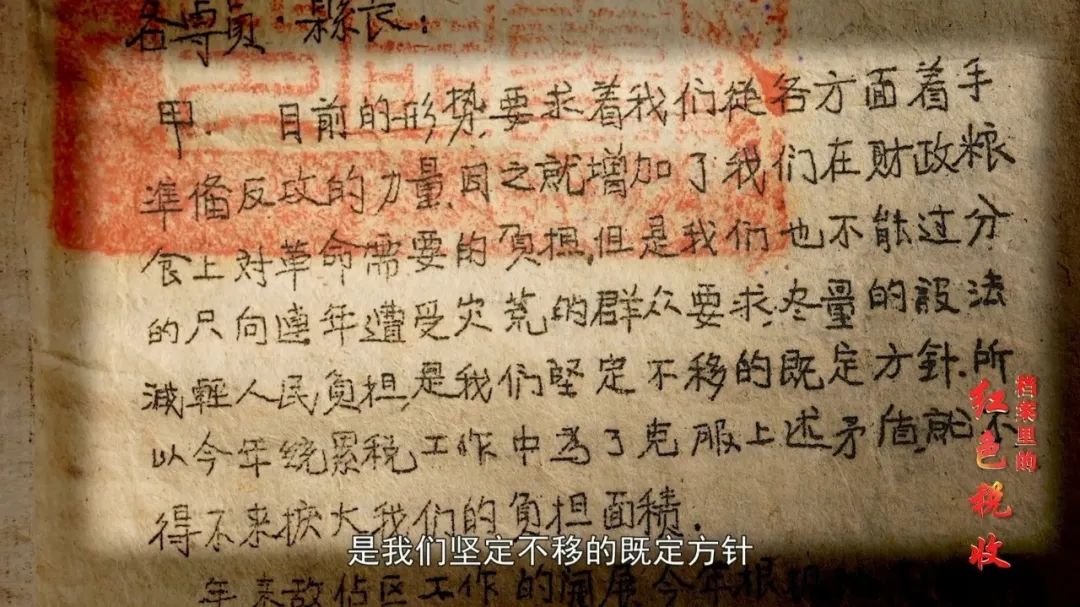 各專員·縣長：
甲. 目前的形势,要求着我们從各方面着手
準备反攻的力量,同之就增加了我们在财政粮
食上对革命需要的負担,但是我们也不能过分
的只向連年遭受灾荒的群众要求,尽量的設法
減輕人民負担,是我们坚定不移的既定方針.所
以今年统累税工作中為了克服上述矛盾,就不
得不来扩大我们的負担面積.
是我们坚定不移的既定方针
年来敌佔区工作的開展今年根
档案里的
红色税收